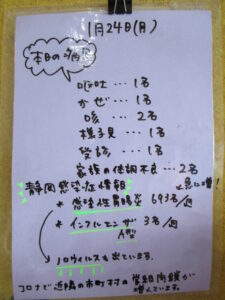 1月24日(月)
本日の病気
嘔吐…1名
かぜ…1名
咳…2名
様子見…1名
受診…1名
家族の体調不良…2名
静岡感染症情報
急に増!
* 感染性胃腸炎 693名/週
* インフルエンザ 3名/週
A型
ノロウイルスも出ています。
コロナで近隣の市町村の学級閉鎖が
増えています。